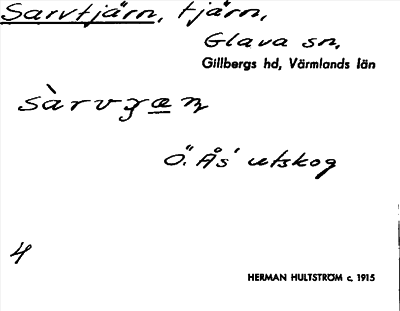 Sarvtjärn, tjärn,
Glava sn,
Gillbergs hd, Värmlands län
Ö. Ås' utskog
4
HERMAN HULTSTRÖM c. 1915